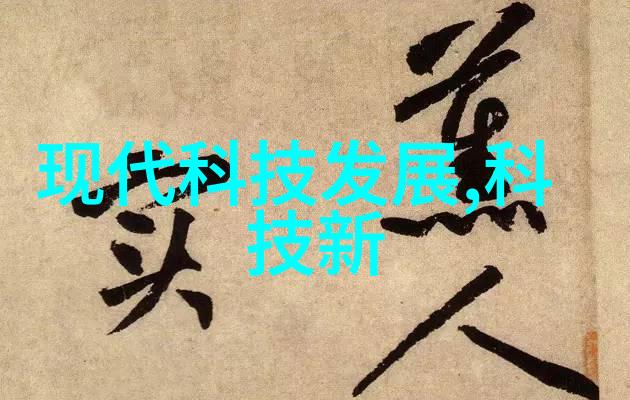 现代科技发展,科
技新
蕉人